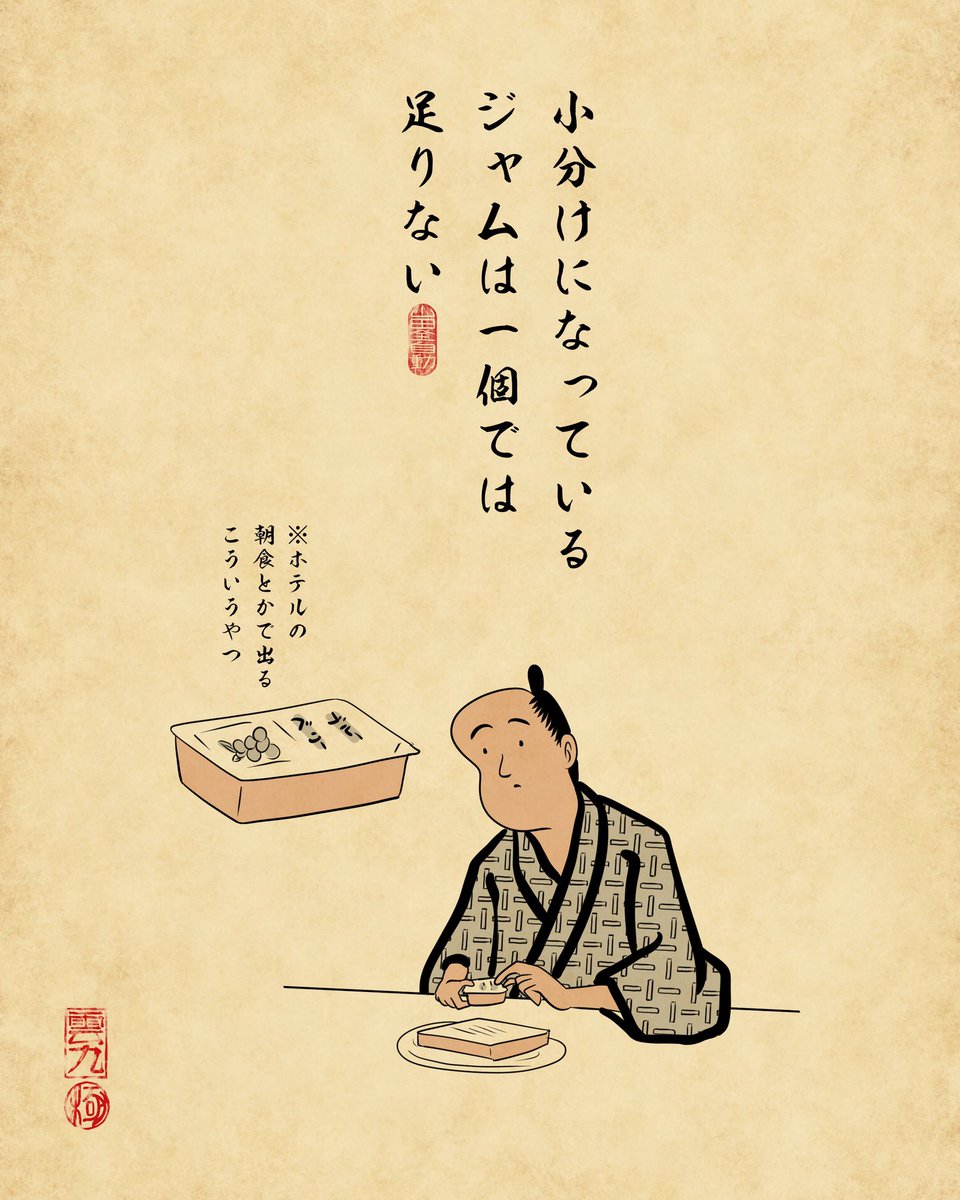 小分けになっている
ジャムは一個では
足りない
※ホテルの
朝食とかで出る
こういうやつ
ブルー
ベリー
雲九
極